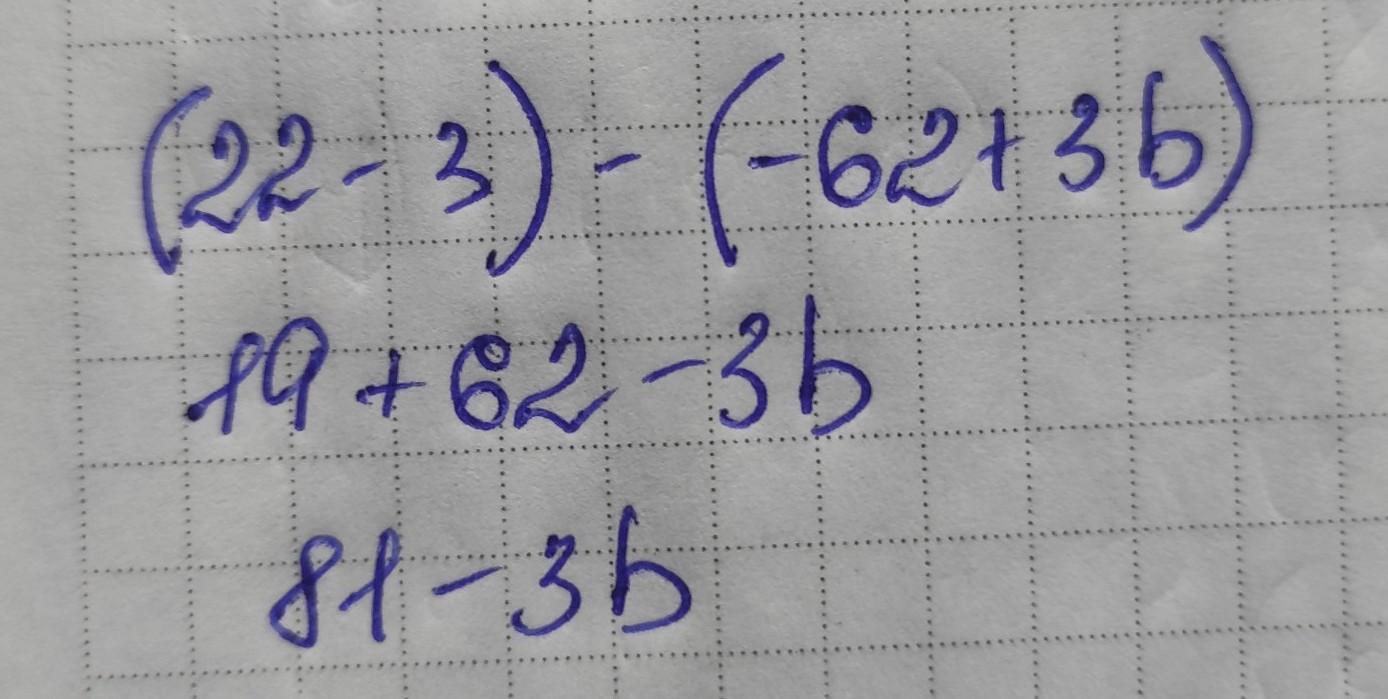 (22-3)-(-62+3b)
19+62-3b
81-3b